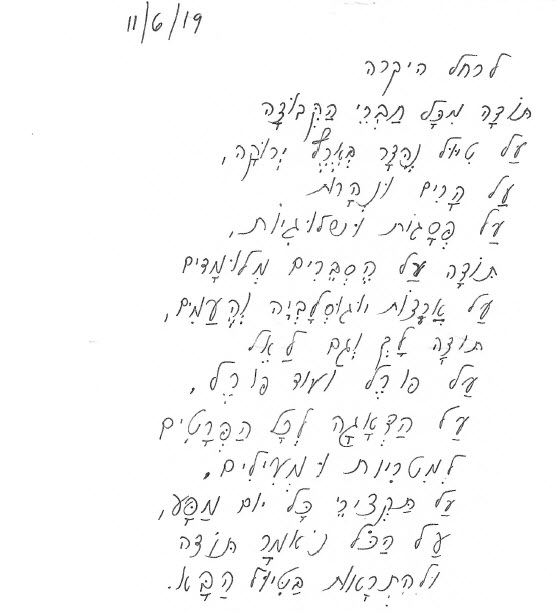 11/6/19
לרחל היקרה
תּוֹדָה מִכָּל חַבְרֵי הַקְּבוּצָה
עַל טִיּוּל נֶהֱדָר בְּאֶרֶץ יְרוּקָה,
עַל הָרִים וּנְהָרוֹת
עַל פְּסָגוֹת וּשלוּגִיּוֹת,
תּוֹדָה עַל הֶסְבֵּרִים מְלוּמָּדִים
עַל אֲרָצוֹת יוּגוֹסְלָבְיָה וְהָעַמִּים,
תּוֹדָה לָךְ וְגַם לָאֵל
עַל פוֹרֶל ועוֹד פּוֹרֶל,
עַל הַדְּאָגָה לְכָל הַפְּרָטִים
לְמִטְרִיּוֹת וּמְעִילִים,
עַל תַּקְצִירֵי כָּל יוֹם מַסָּע,
עַל הַכֹּל נֹאמַר תּוֹדָה
וּלְהִתְרָאוֹת בַּטִּיּוּל הַבָּא.